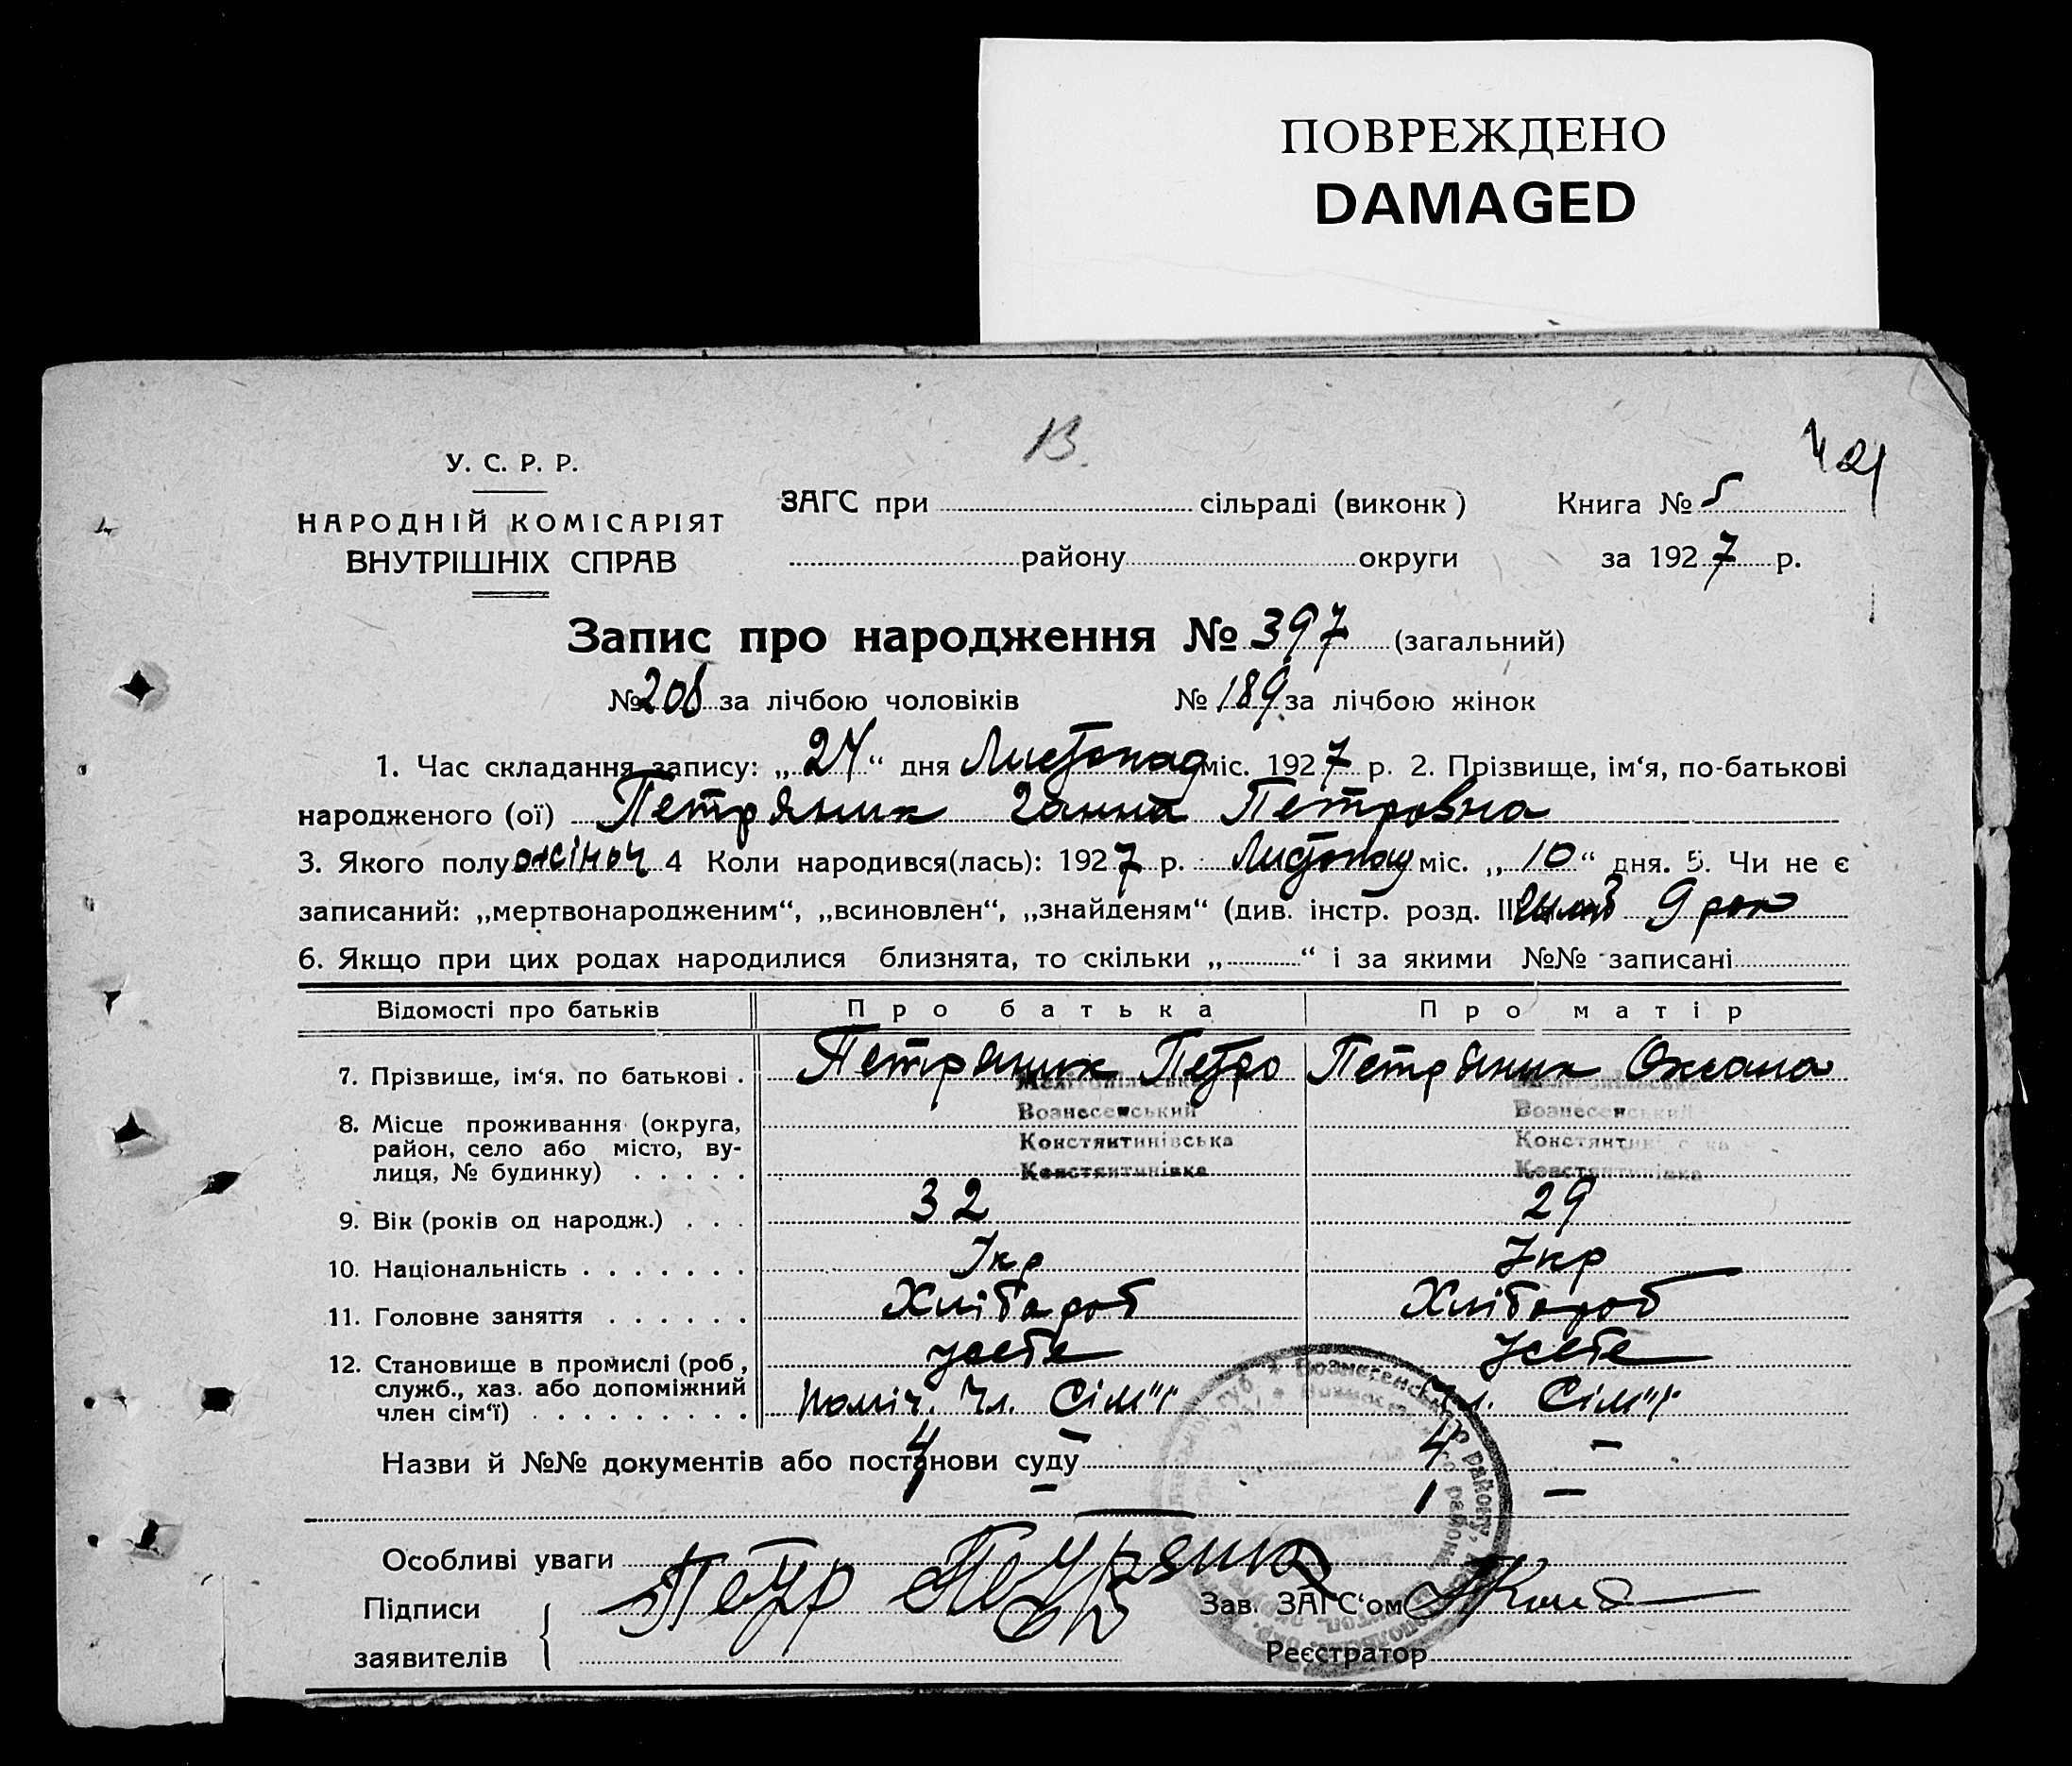 ПОВРЕЖДЕНО
DAMAGED
У. С. Р. Р.
НАРОДНІЙ КОМІСАРІЯТ
ВНУТРІШНІХ СПРАВ
ЗАГС при сільраді (виконк)
району округи
Книга № 5
за 1927 р.
Запис про народження № 397 (загальний)
№ 208 за лічбою чоловіків № 189 за лічбою жінок
1. Час складання запису: „24“ дня Листопад міс. 1927 р. 2. Прізвище, ім‘я, по-батькові
народженого (ої) Петряник Ганна Петровна
3. Якого полу жіноч 4 Коли народився(лась): 1927 р. Листопад міс. „10“ дня. 5. Чи не є
записаний: „мертвонародженим“, „всиновлен“, „знайденям“ (див. інстр. розд. III
6. Якщо при цих родах народилися близнята, то скільки „ “ і за якими №№ записані
Відомості про батьків Про батька Про матір
7. Прізвище, ім‘я. по батькові . Петряник Петро Петряник Оксана
8. Місце проживання (округа, район, село або місто, вулиця, № будинку) . . . . .
Вознесенський Вознесенський
Констянтинівська Констянтинівська
Констянтинівка Констянтинівка
9. Вік (років од народж.) . . . 32 29
10. Національність . . . . . . . Укр Укр
11. Головне заняття . . . . . . Хлібороб Хлібороб
12. Становище в промислі (роб, служб., хаз. або допоміжний член сім‘ї) . . . . . . . . .
поміч. чл. Сім"ї чл. Сім"ї
4 – 4 –
Назви й №№ документів або постанови суду
1 – 1 –
Особливі уваги
Підписи
заявителів
Петр Петряник
Зав. ЗАГС‘ом
Реєстратор